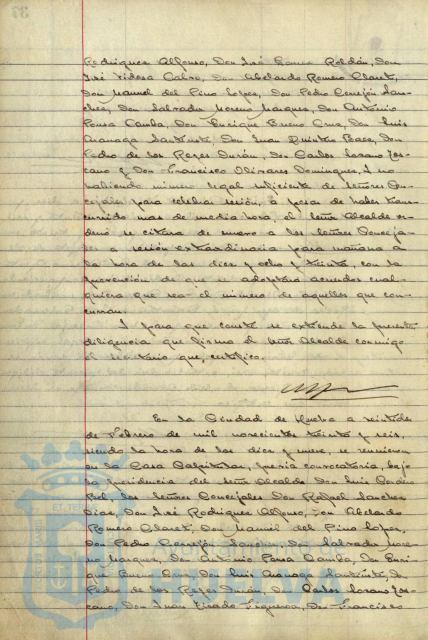 Rodriguez Alfonso, Don José Gomez Roldán, Don
José Tidosa Calvo, Don Abelardo Romero Claret,
Don Manuel del Pino Lopez, Don Pedro Cerrejón San-
chez, Don Salvador Moreno Marquez, Don Antonio
Ponsa Camba, Don Enrique Bueno Cruz, Don Luis
Don Juan Quintero Baez, Don
Pedro de los Reyes Durán, Don Carlos Lozano Tos-
cano y Don Francisco Olivares Dominguez, y no
habiendo número legal suficiente de Señores Con-
cejales para celebrar sesión, a pesar de haber trans-
currido mas de media hora, el Señor Alcalde or-
denó se citara de nuevo a los Señores Conceja-
les a sesión extraordinaria para mañana a
la hora de las diez y ocho y treinta, con la
prevención de que se adoptarán acuerdos cual-
quiera que sea el número de aquellos que con-
curran.
Y para que conste se extiende la presente
diligencia que firma el Señor Alcalde conmigo
el Secretario que, certifico.
En la Ciudad de Huelva a veintidos
de Febrero de mil novecientos treinta y seis,
siendo la hora de las diez y nueve, se reunieron
en la Casa Capitular, previa convocatoria, bajo
la presidencia del Señor Alcalde Don Luis Cordero
Bel, los Señores Concejales Don Rafael Sanchez
Diaz, Don José Rodriguez Alfonso, Don Abelardo
Romero Claret, Don Manuel del Pino Lopez,
Don Pedro Cerrejón Sanchez, Don Salvador More-
no Marquez, Don Antonio Ponsa Camba, Don Enri-
que Bueno Cruz, Don Luis
Pedro de los Reyes Durán, Don Carlos Lozano Tos-
cano, Don Juan Tirado Figueroa, Don Francisco